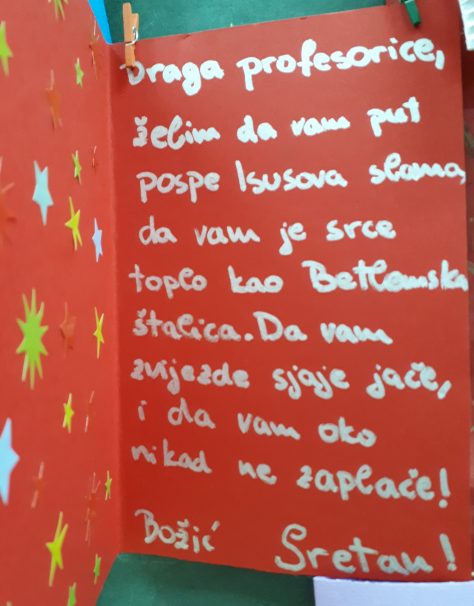 Draga profesorice,
želim da vam put
pospe Isusova slama,
da vam je srce
toplo kao Betlemska
štalica. Da vam
zvijezde sjaje jače,
i da vam oko
nikad ne zaplače!
Božić Sretan!